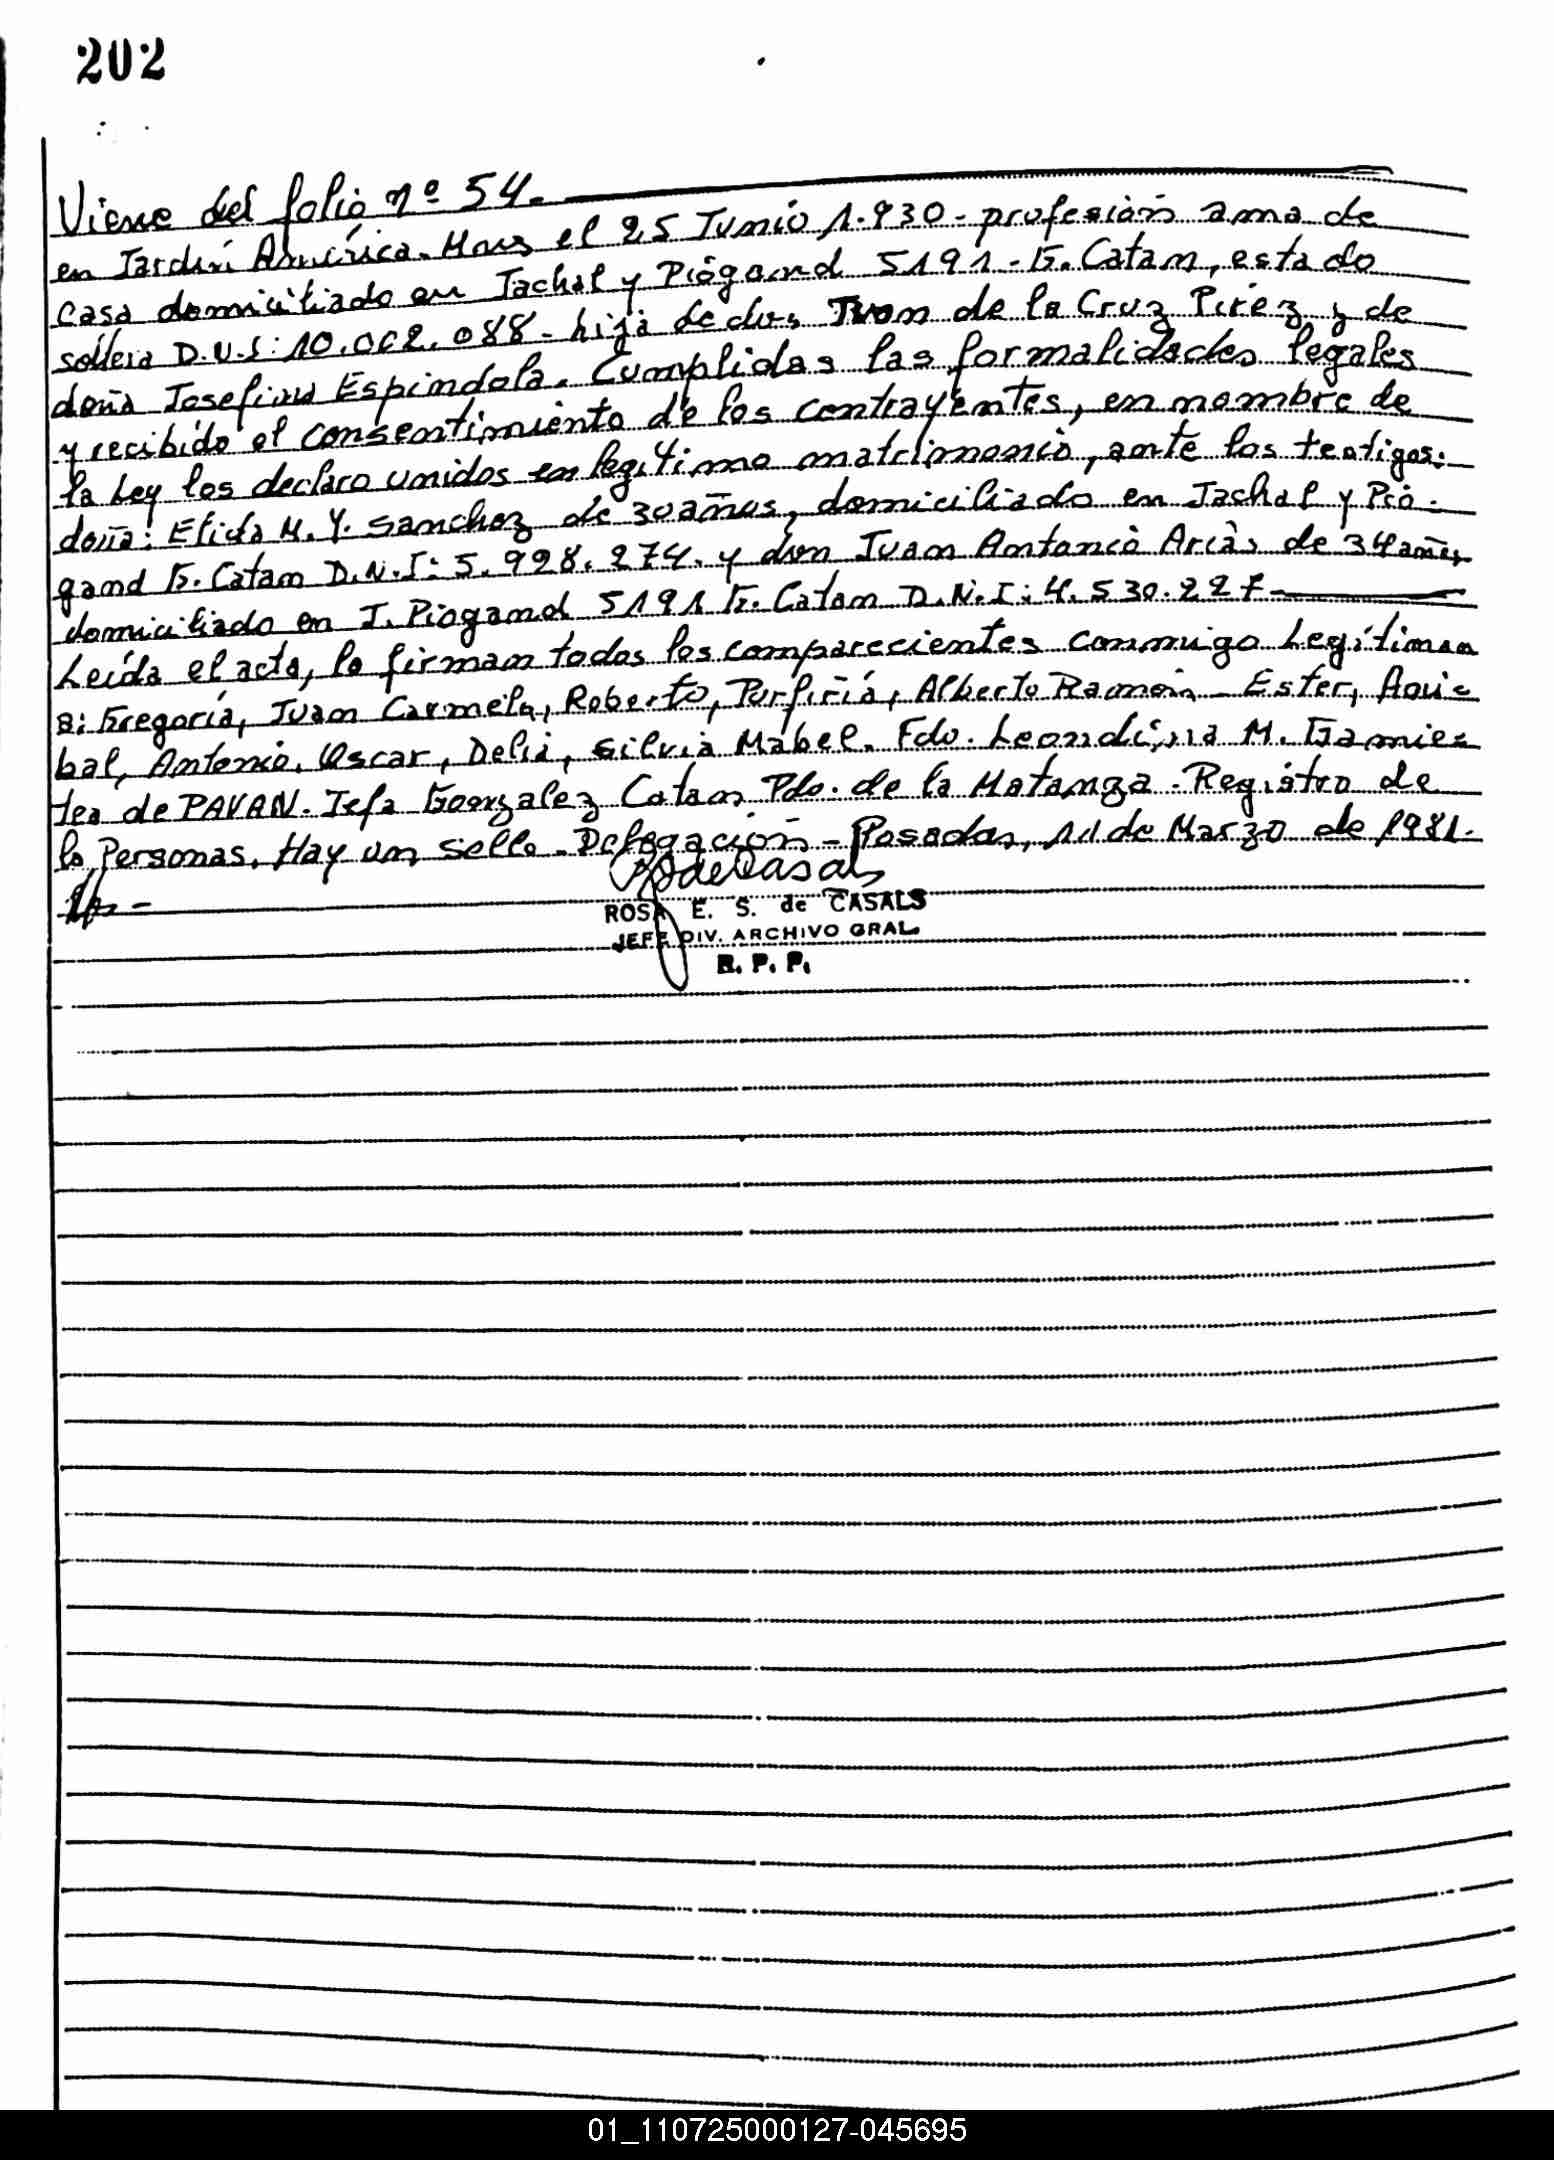 202
Viene del folio nº 54.
en Jardín América. Mnes el 25 Junio 1.930 - profesión ama de
casa domiciliado en Jachal y Piógand 5191 - G. Catam, estado
soltera D.N.I: 10.002.088 - hija de don Juan de la Cruz Pirez y de
doña Josefina Espindola. Cumplidas las formalidades legales
y recibido el consentimiento de los contrayentes, en nombre de
la Ley los declaro unidos en legítimo matrimonio, ante los testigos:
doña: Elida M. Y. Sanchez de 30 años, domiciliado en Jachal y Pió-
gand G. Catam D.N.I: 5.928.274. y don Juan Antonio Arias de 34 años,
domiciliado en J. Piogand 5191 G. Catam D.N.I: 4.530.227
Leída el acta, la firman todos los comparecientes conmigo Legitiman
a: Gregoria, Juan Carmelo, Roberto, Porfiria, Alberto Ramón - Ester, Aní-
bal, Antonio, Oscar, Delia, Silvia Mabel. Fdo. Leondina M. G
de PAVAN. Jefa Gonzalez Catam Pdo. de la Matanza. Registro de
la Personas. Hay un sello. Delegación - Posadas, 11 de Marzo de 1981.
ROSA E. S. de CASALS
JEFE DIV. ARCHIVO GRAL.
R. P. P.
01_110725000127-045695